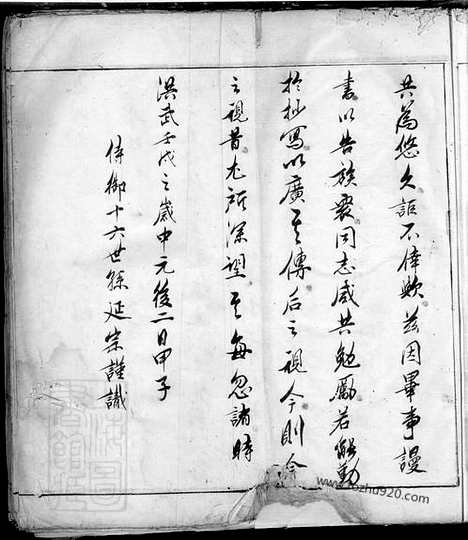 共為悠久詎不偉歟茲因畢事謾
書以告族衆同志咸共勉勵若能勤
於抄寫以廣其傳后之視今則今
之視昔尤所深望其毋忽諸時
洪武壬戌之歲中元後二日甲子
侍御十六世孫延宗謹識
zozhu920.com